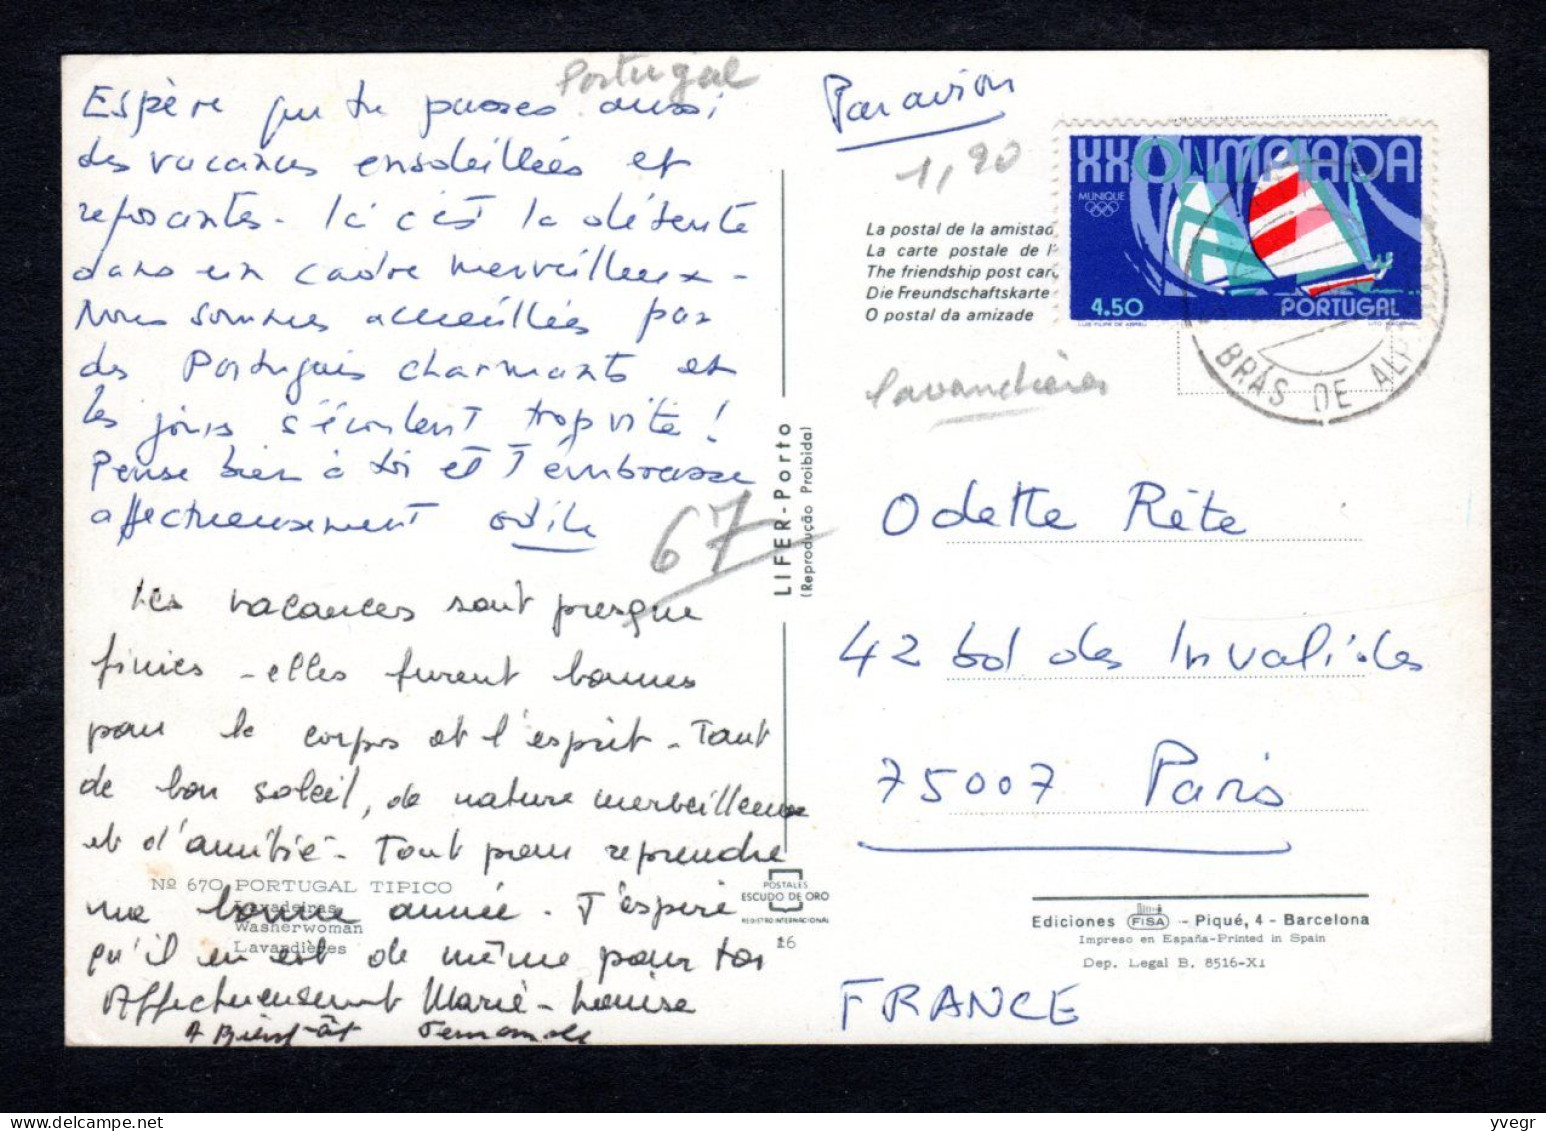 Portugal
Espère que tu passes aussi
des vacances ensoleillées et
reposantes - Ici c'est la détente
dans un cadre merveilleux -
Nous sommes accueillies par
des Portugais charmants et
les jours s'écoulent trop vite !
Pense bien à toi et t'embrasse
affectueusement Odile
67
Les vacances sont presque
finies - elles furent bonnes
pour le corps et l'esprit - Tant
de bon soleil, de nature merveilleuse
et d'amitié - Tout pour reprendre
une bonne année - J'espère
qu'il en est de même pour toi
Affectueusement Marie-Louise
A Bientôt
Nº 670 PORTUGAL TIPICO
Lavadeiras
Washerwoman
Lavandières
LIFER-Porto
(Reprodução Proibida)
POSTALES
ESCUDO DE ORO
REGISTRO INTERNACIONAL
16
Par avion
1,20
XX OLIMPIADA
MUNIQUE
4.50
PORTUGAL
LUIS FILIPE DE ABREU
LITO NACIONAL
BRÁS DE ALP
La postal de la amistad
La carte postale de l'
The friendship post card
Die Freundschaftskarte
O postal da amizade
lavandières
Odette Rète
42 bd des Invalides
75007 Paris
Ediciones FISA - Piqué, 4 - Barcelona
Impreso en España-Printed in Spain
Dep. Legal B. 8516-XI
FRANCE
yvegr